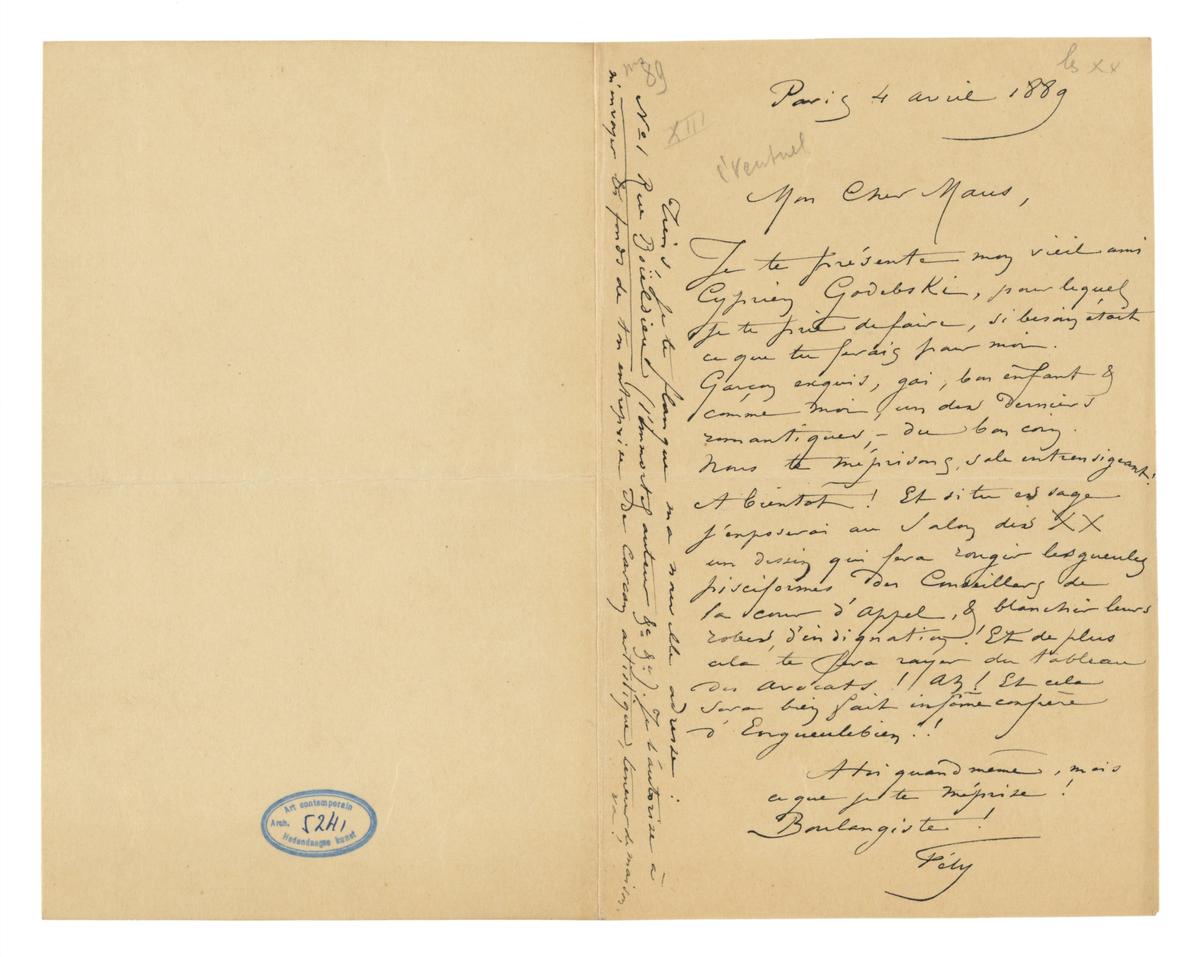 les XX
Paris 4 avril 1889
89
XIII
éventuel
Mon Cher Maus,
Je te présente mon vieil ami
Cyprien Godebski, pour lequel
je te prie de faire, si besoin était
ce que tu ferais pour moi.
Garçon exquis, gai, bon enfant &
comme moi, un des derniers
romantiques, – du bon coin.
Nous te méprisons, sale intransigeant!
A bientôt ! Et si tu es sage
j'exposerai au Salon des XX
un dessin qui fera rougir les gueules
pisciformes des Conseillers de
la cour d'Appel, & blanchir leurs
robes, d'indignation ! Et de plus
cela te fera rayer du tableau
des avocats !! Ah ! Et cela
sera bien fait infâme confrère
d'Engueulebien !!
A toi quand même, mais
ce que je te méprise !
Boulangiste !
Fély
Tiens, je te flanque ma nouvelle adresse :
No 1 Rue Boïeldieu (l'Immortel auteur &c &c). Je t'autorise à
m'envoyer des fonds de ton entreprise de Carcan artistique, teneur de maison
Art contemporain
Arch. 5241
Hedendaagse kunst